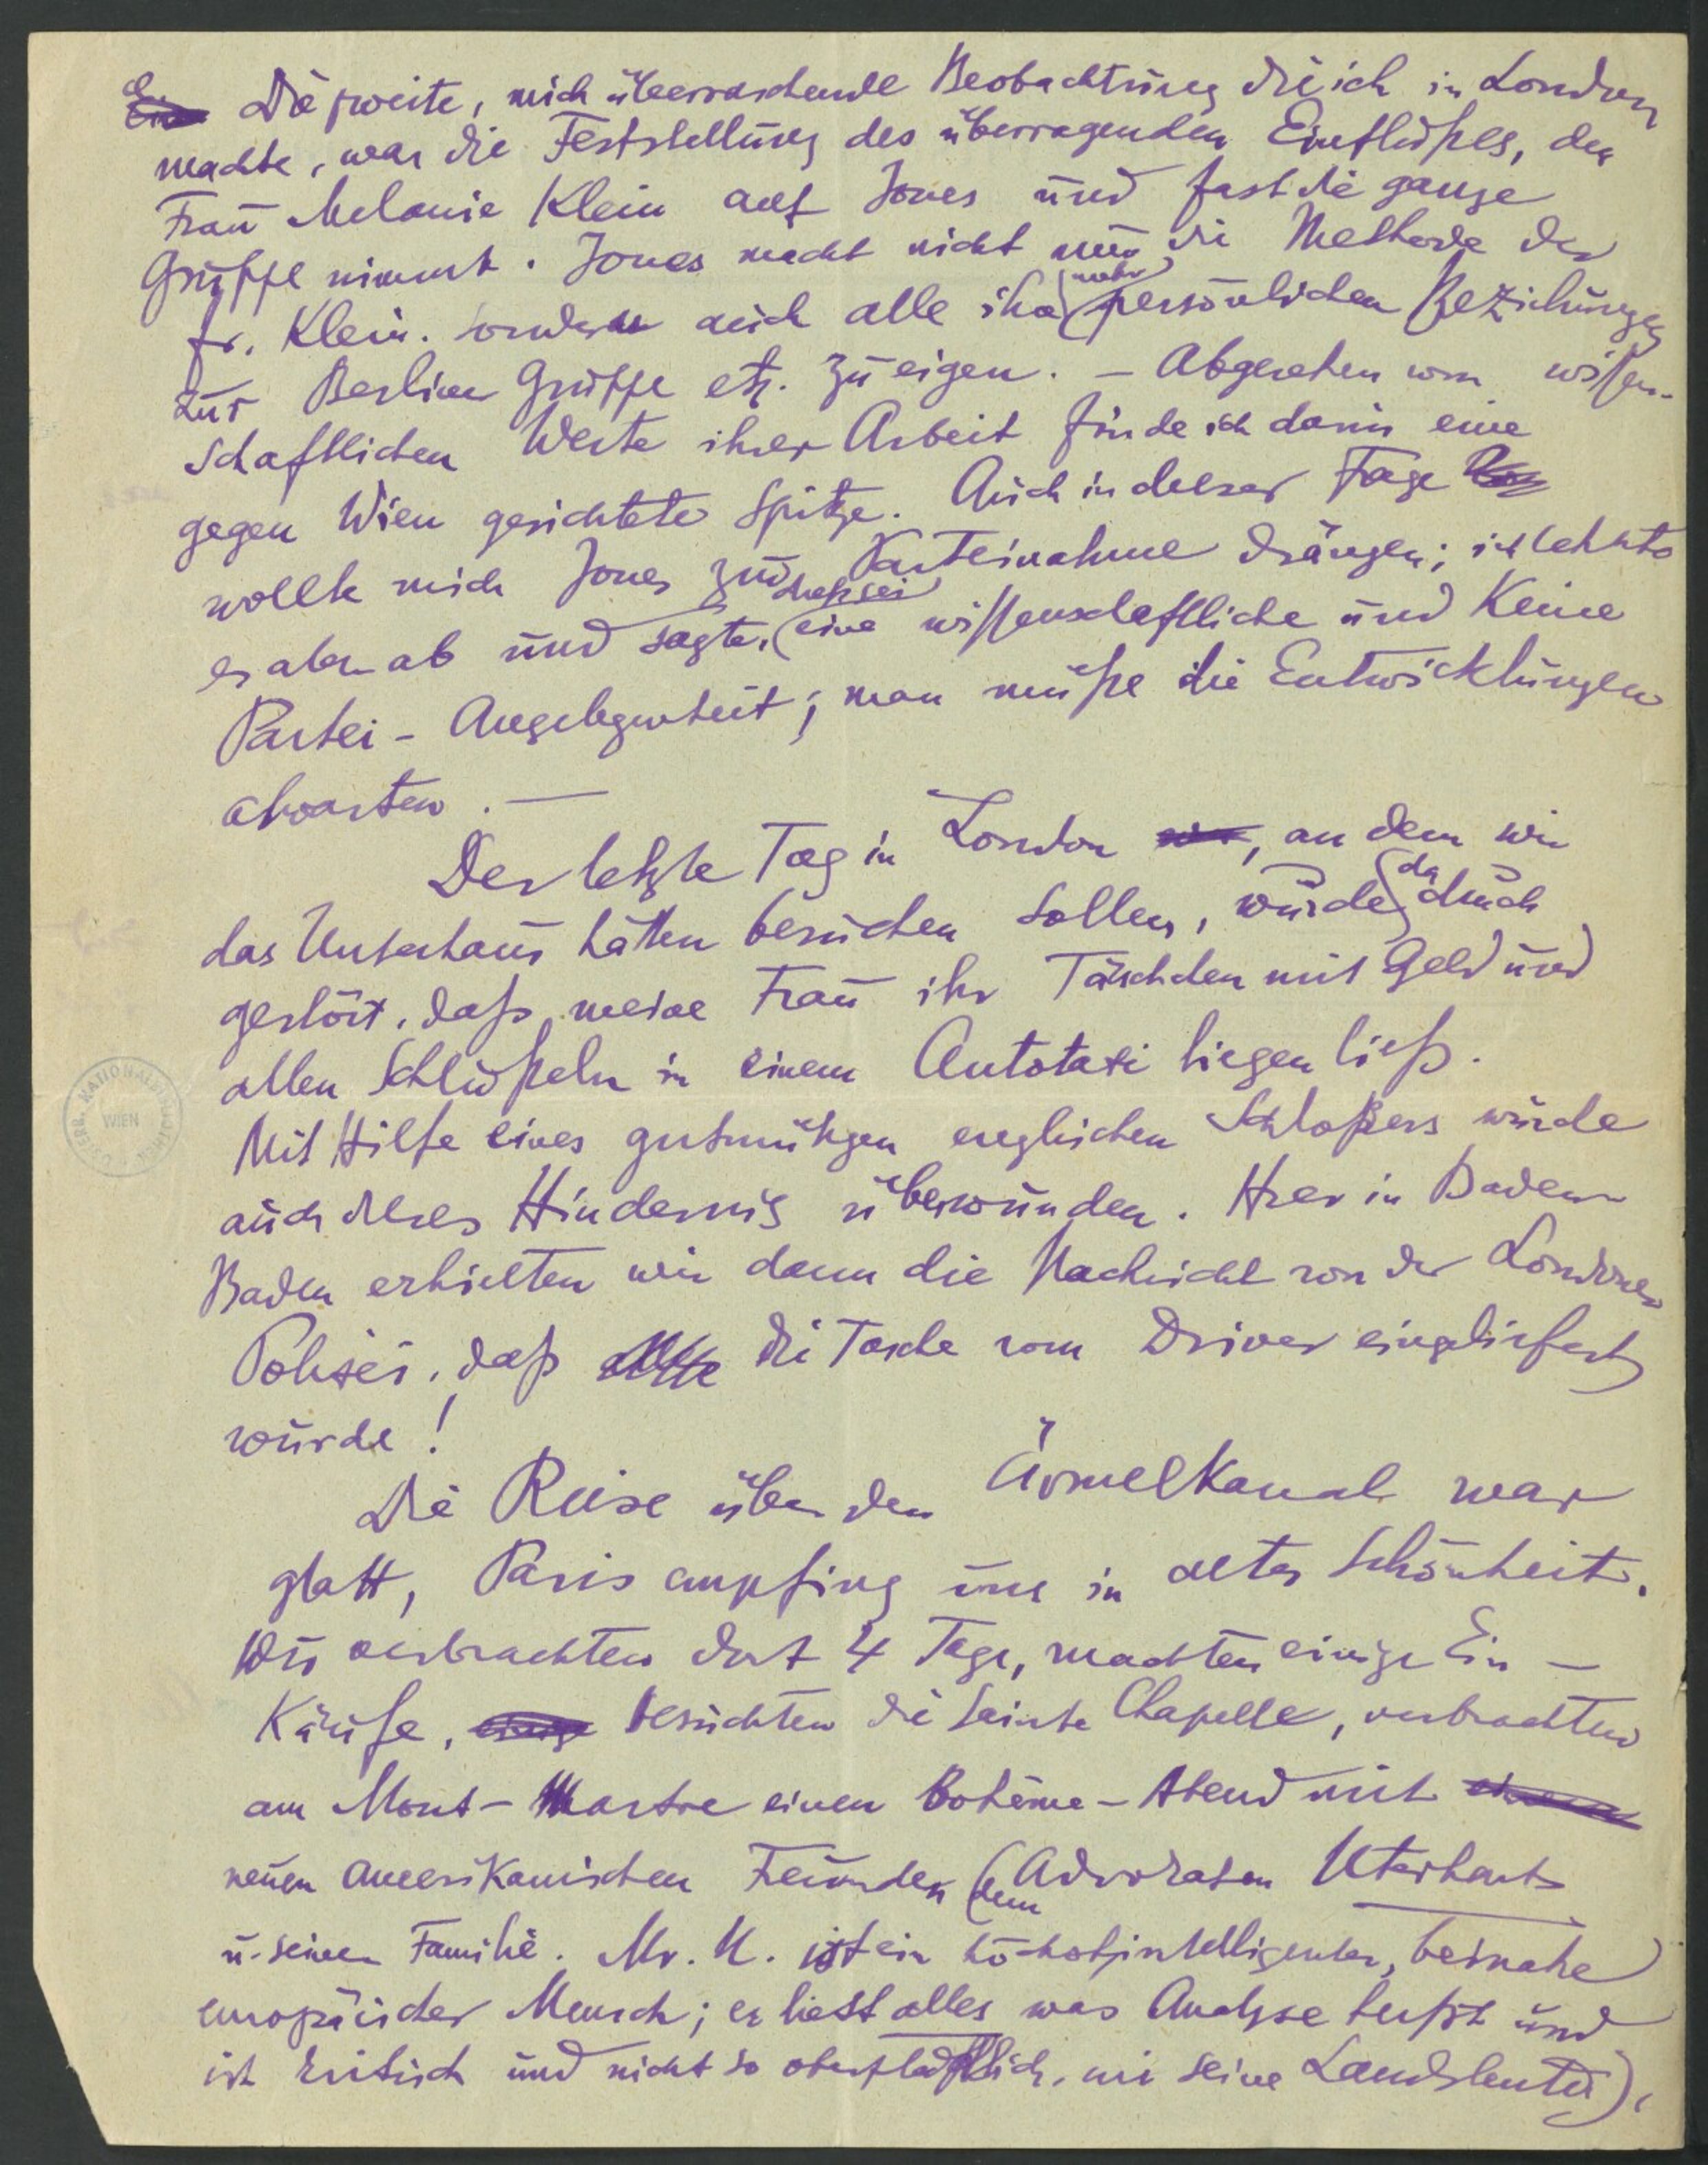 Die zweite, mich überraschende Beobachtung die ich in London
machte, war die Feststellung des überragenden Einflußes, den
Frau Melanie Klein auf Jones und fast die ganze
Gruppe nimmt. Jones macht nicht nur die Methode der
Fr. Klein. sondern auch alle ihre (mehr) persönlichen Beziehungen
zur Berliner Gruppe etz. zu eigen. – Abgesehen vom wissen-
schaftlichen Werte ihrer Arbeit finde ich darin eine
gegen Wien gerichtete Spitze. Auch in dieser Frage
wollte mich Jones zur Parteinahme drängen; ich lehnte
es aber ab und sagte, (das sei eine wissenschaftliche und keine
Partei-Angelegenheit; man müße die Entwicklungen
abwarten. —
Der letzte Tag in London, an dem wir
das Unterhaus hätten besuchen sollen, wurde dadurch
gestört, daß meine Frau ihr Täschchen mit Geld und
allen Schlüßeln in einem Autotaxi liegen ließ.
Mit Hilfe eines gutmütigen englischen Schloßers wurde
auch dieses Hindernis überwunden. Hier in Baden
Baden erhielten wir dann die Nachricht von der Londoner
Polizei, daß die Tasche vom Driver eingeliefert
wurde!
Die Reise über den Ärmelkanal war
glatt, Paris empfing uns in alter Schönheit.
Wir verbrachten dort 4 Tage, machten einige Ein-
käufe, besuchten die Sainte Chapelle, verbrachten
am Mont-Martre einen Bohême-Abend mit
neuen amerikanischen Freunden (dem Advokaten Uterhart
u. seiner Familie. Mr. U. ist ein höchst intelligenter, beinahe
europäischer Mensch; er liest alles was Analyse heißt und
ist kritisch und nicht so oberflächlich, wie seine Landsleute).